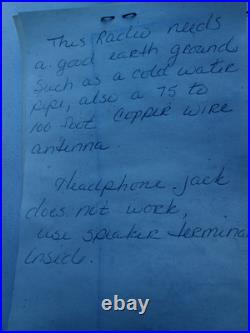 This Radio needs
a good earth ground
Such as a cold water
pipe, also a 75 to
100 foot Copper wire
antenna
Headphone jack
does not work,
use speaker termina
inside.